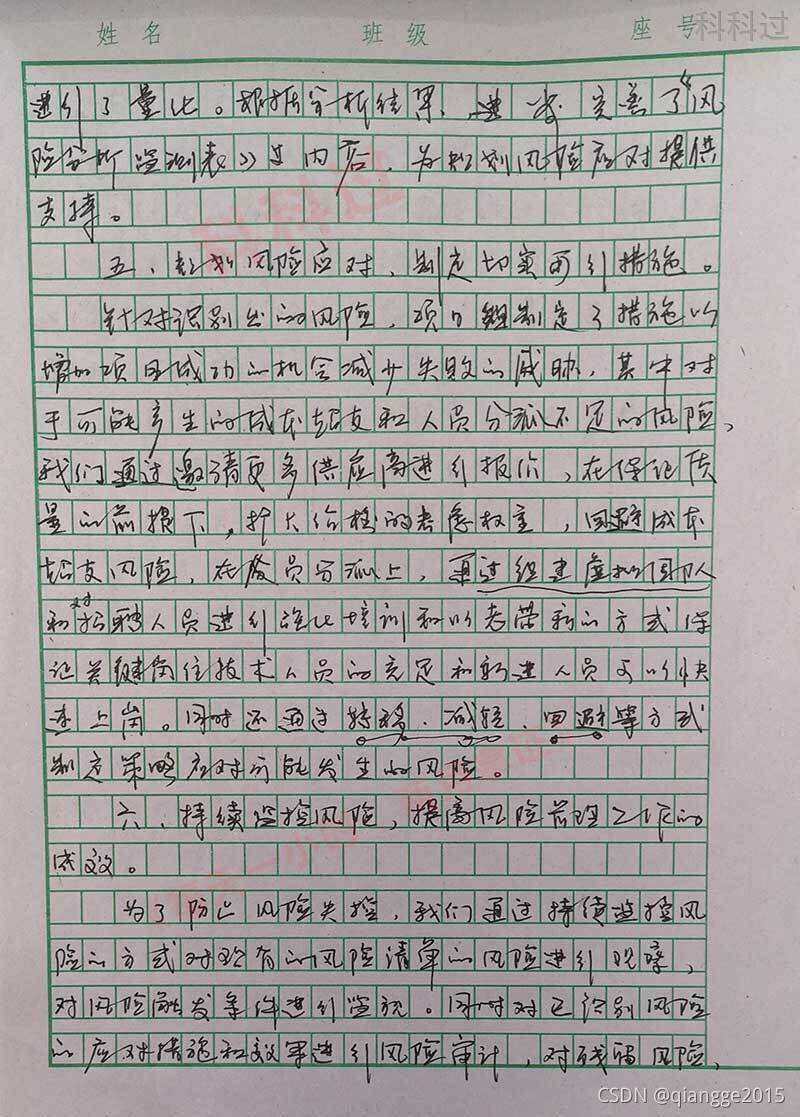 姓名 班级 座号 科科过
进行了量化。根据分析结果,进一步完善了《风
险分析监测表》过内容,为规划风险应对提供
支持。
五、规划风险应对,制定切实可行措施。
针对识别出的风险,项目组制定了措施以
增加项目成功的机会减少失败的威胁,其中对
于可能产生的成本超支和人员分派不足的风险,
我们通过邀请更多供应商进行报价,在保证质
量的前提下,扩大价格的考虑权重,回避成本
超支风险,在人员分派上,通过组建虚拟团队
和对招聘人员进行强化培训和以老带新的方式保
证关键岗位技术人员的充足和新进人员可以快
速上岗。同时还通过转移、减轻、回避等方式
制定策略应对可能发生的风险。
六、持续监控风险,提高风险管理工作的
成效。
为了防止风险失控,我们通过持续监控风
险的方式对现有的风险清单的风险进行观察,
对风险触发条件进行监视。同时对已识别风险
的应对措施和效果进行风险审计,对残留风险,
科科过
CSDN @qiangge2015